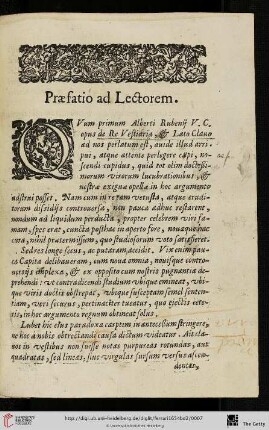 Præfatio ad Lectorem.
QVum primum Alberti Rubenij V. C.
opus de Re Vestiaria, & Lato Clauo
ad nos perlatum est, auide illud arri-
pui, atque attente perlegere cœpi, no-
scendi cupidus, quid tot olim doctissi-
morum virorum lucubrationibus, &
nostræ exigua opella in hoc argumento
adstrui posset. Nam cum in re tam vetusta, atque erudi-
torum dissidijs controuersa, non pauca adhuc restarent,
nondum ad liquidum perducta, propter celebrem viri fa-
mam, spes erat, cuncta posthac in aperto fore, nouaque hac
cura, nihil prætermissum, quo studiosorum voto satisfieret.
Sed res longe secus, ac putaram, accidit. Vix enim pau-
ca Capita delibaueram, cum noua omnia, nouisque contro-
uersijs implexa, & ex opposito cum nostris pugnantia de-
prehendi: vt contradicendi studium vbique emineat, vbi-
que viris doctis obstrepat, vbique susceptam semel senten-
tiam, veri securus, pertinaciter tueatur, quo eiectis cete-
ris, in hoc argumento regnum obtineat solus.
Lubet hic eius paradoxa carptim in antecessum stringere,
ne hoc a nobis obtrectandi causa dictum videatur. Ait cla-
uos in vestibus non fuisse notas purpureas rotundas, aut
quadratas, sed lineas, siue virgulas sursum versus ascen-
dentes,
http://digi.ub.uni-heidelberg.de/diglit/ferrari1654bd2/0007
The Getty